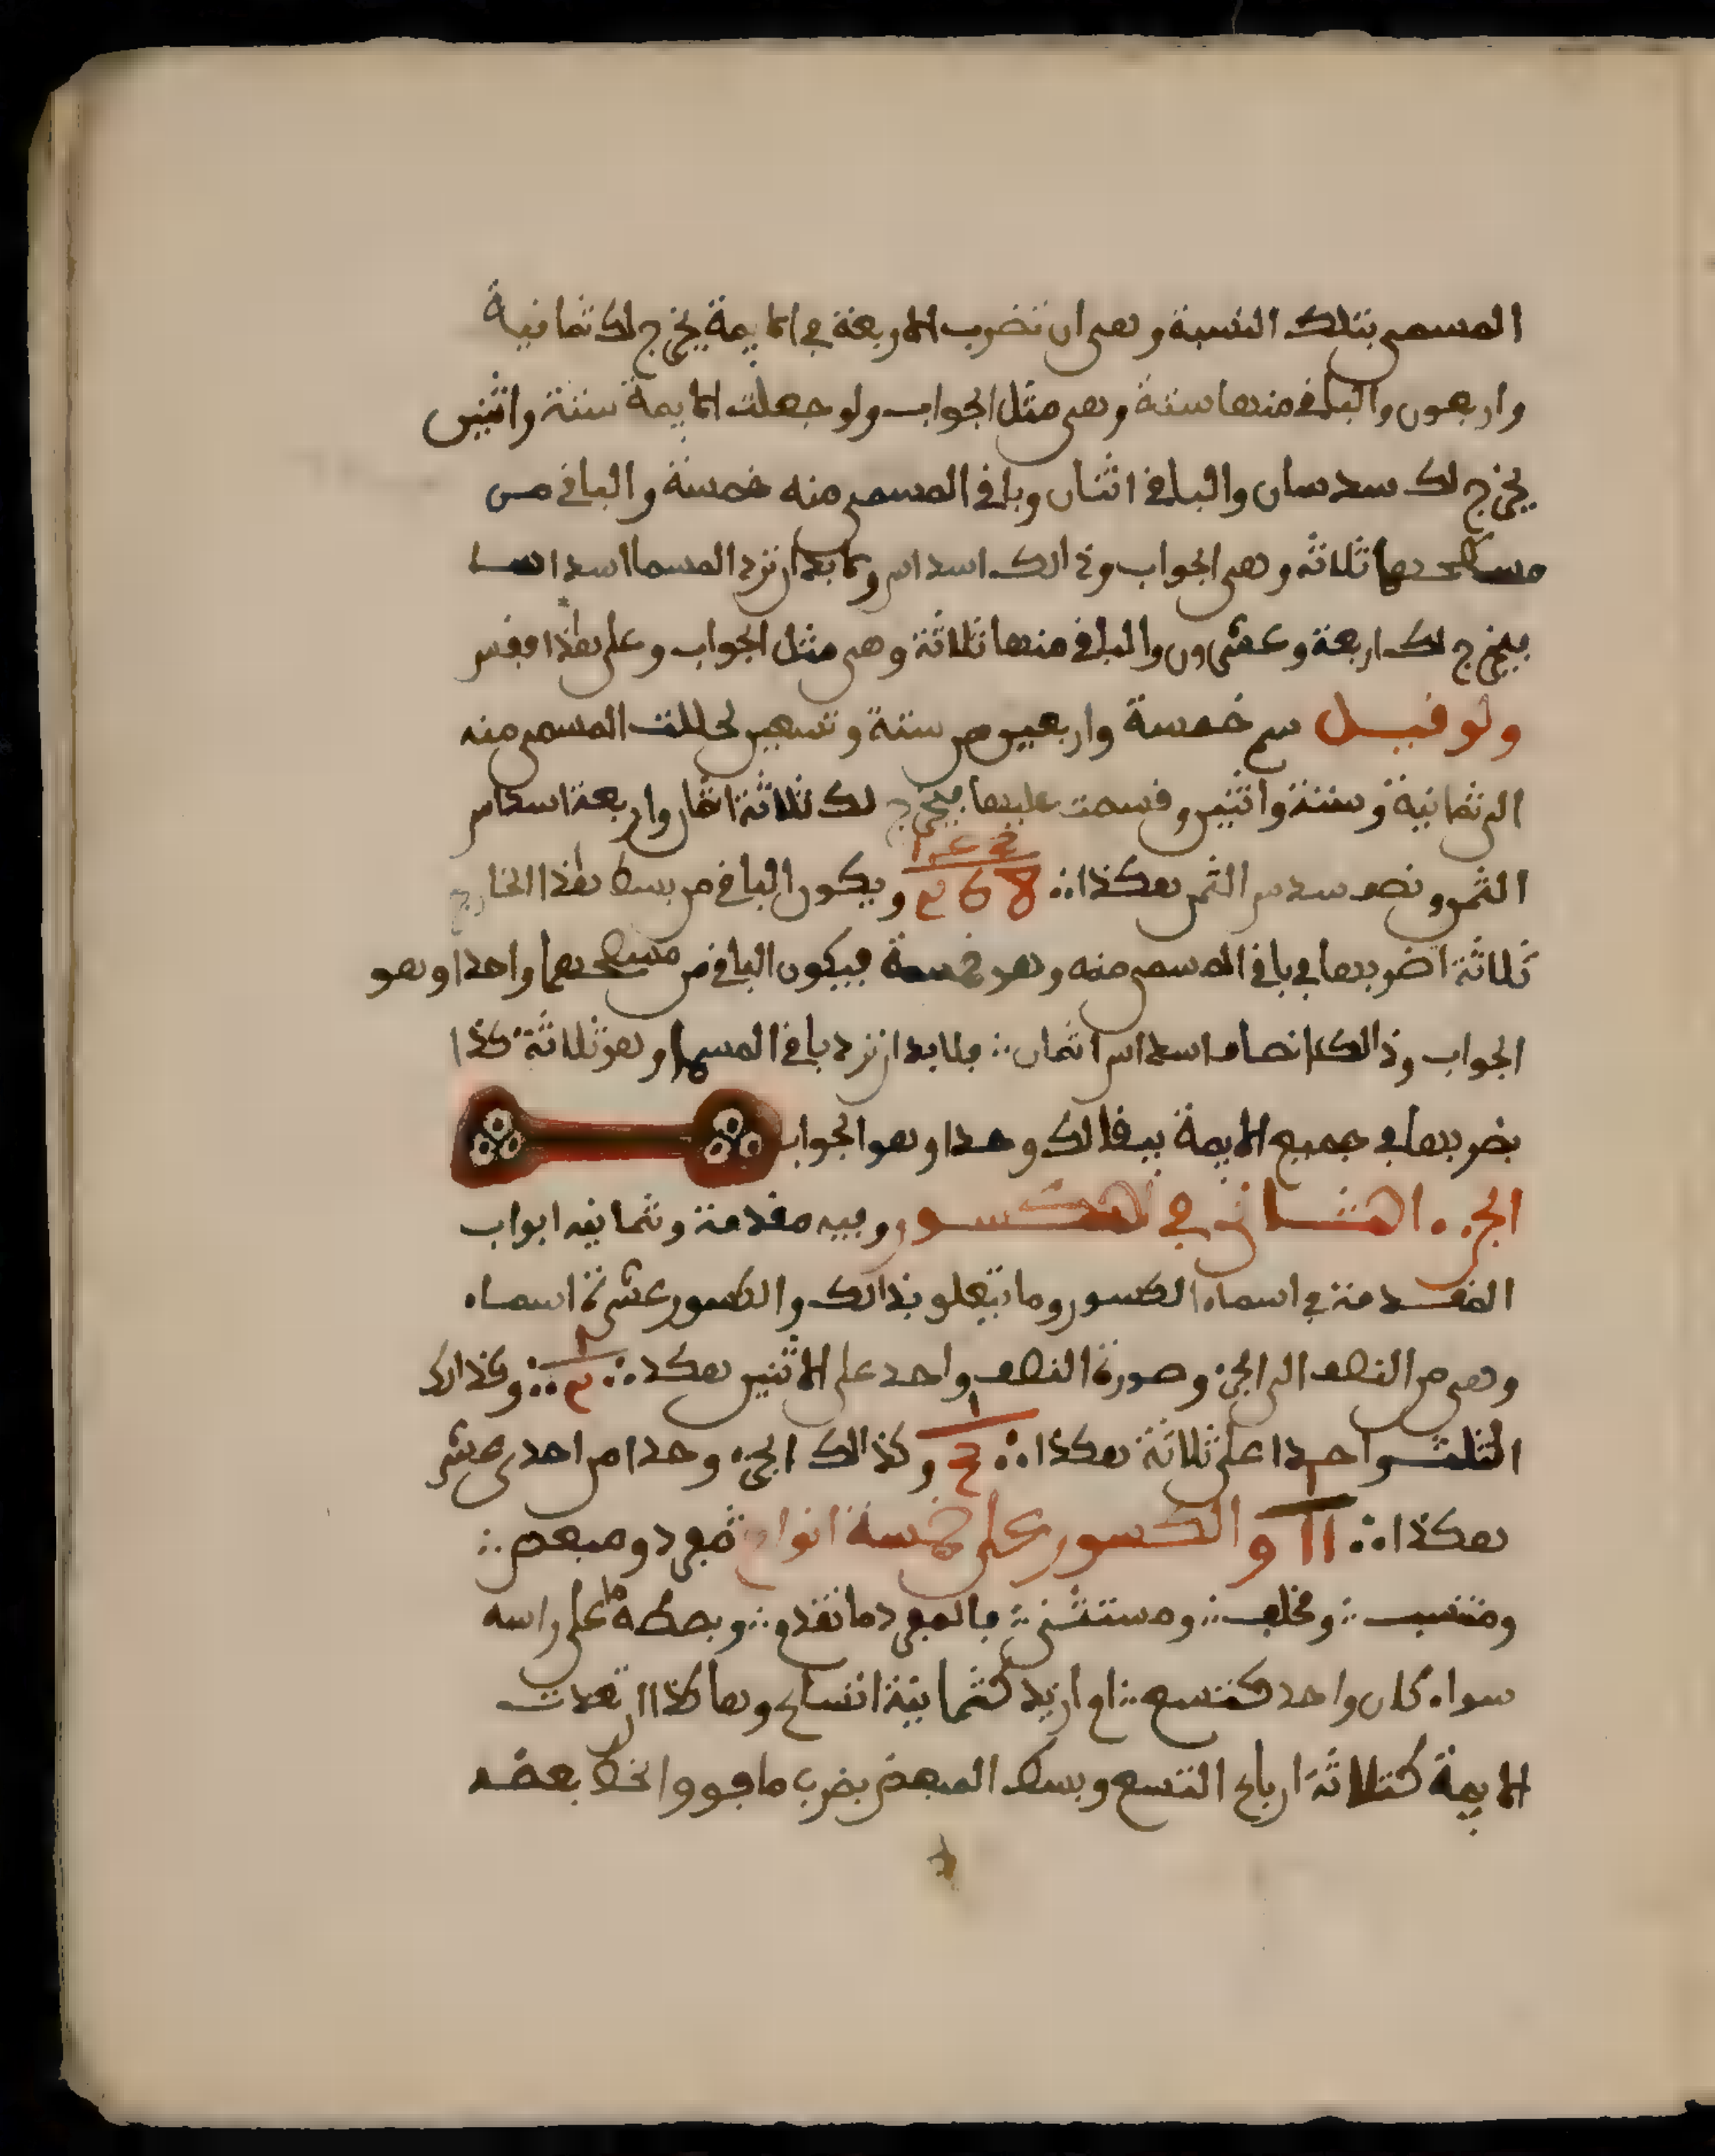 المسمى بتلك النسبة وهي ان تضرب الاربعة في الايمة يخرج لك ثمانية
واربعون والباقي منها ستة وهي مثل الجواب ولو جعلت الايمة ستة واثنين
يخرج لك سدسان والباقي اثنان وباقي المسمى منه خمسة والباقي من
مسطحها ثلاثة وهي الجواب وذالك اسداس ولابد ان ترد المسما اسداسا
فيخرج لك اربعة وعشرون والباقي منها ثلاثة وهي مثل الجواب وعلى هذا فقس
ولو قيل سم خمسة واربعين من ستة وتسعين لحللت المسمى منه
الى ثمانية وستة واثنين وقسمت عليها فيخرج لك ثلاثة اثمان واربعة اسداس
الثمن ونصف سدس الثمن هكذا ∴ ويكون الباقي من بسط هذا الخارج
ثلاثة اضربها في باقي المسمى منه وهو خمسة فيكون الباقي من مسطحهما واحدا وهو
الجواب وذالك انصاف اسداس اثمان ∴ فلابد ان ترد باقي المسما وهو ثلاثة كذا
بضربها في جميع الايمة يبقا لك وحدا وهو الجواب
الجزء الثاني في الكسور وفيه مقدمة وثمانيه ابواب
المقدمة في اسماء الكسور وما يتعلق بذالك والكسور عشرة اسماء
وهي من النصف الى الجزء وصورة النصف واحد على الاثنين هكذ ∴ ١/٢ ∴ وكذالك
الثلث واحدا على ثلاثة هكذا ∴ ١/٣ وكذالك الجزء وحدا من احدى عشر
هكذا ∴ ١/١١ والكسور على خمسة انواع مفرد ومبعض ∴
ومنتسب ∴ ومختلف ∴ ومستثنى ∴ فالمفرد ما تقدم ∴ وبسطه ما على راسه
سواء كان واحد كتسع ∴ او ازيد كثمانية اتساع وهاكذا ان تعددت
الايمة كثلاثة ارباع التسع وبسط المبعض بضرب ما فوق الخط بعضه